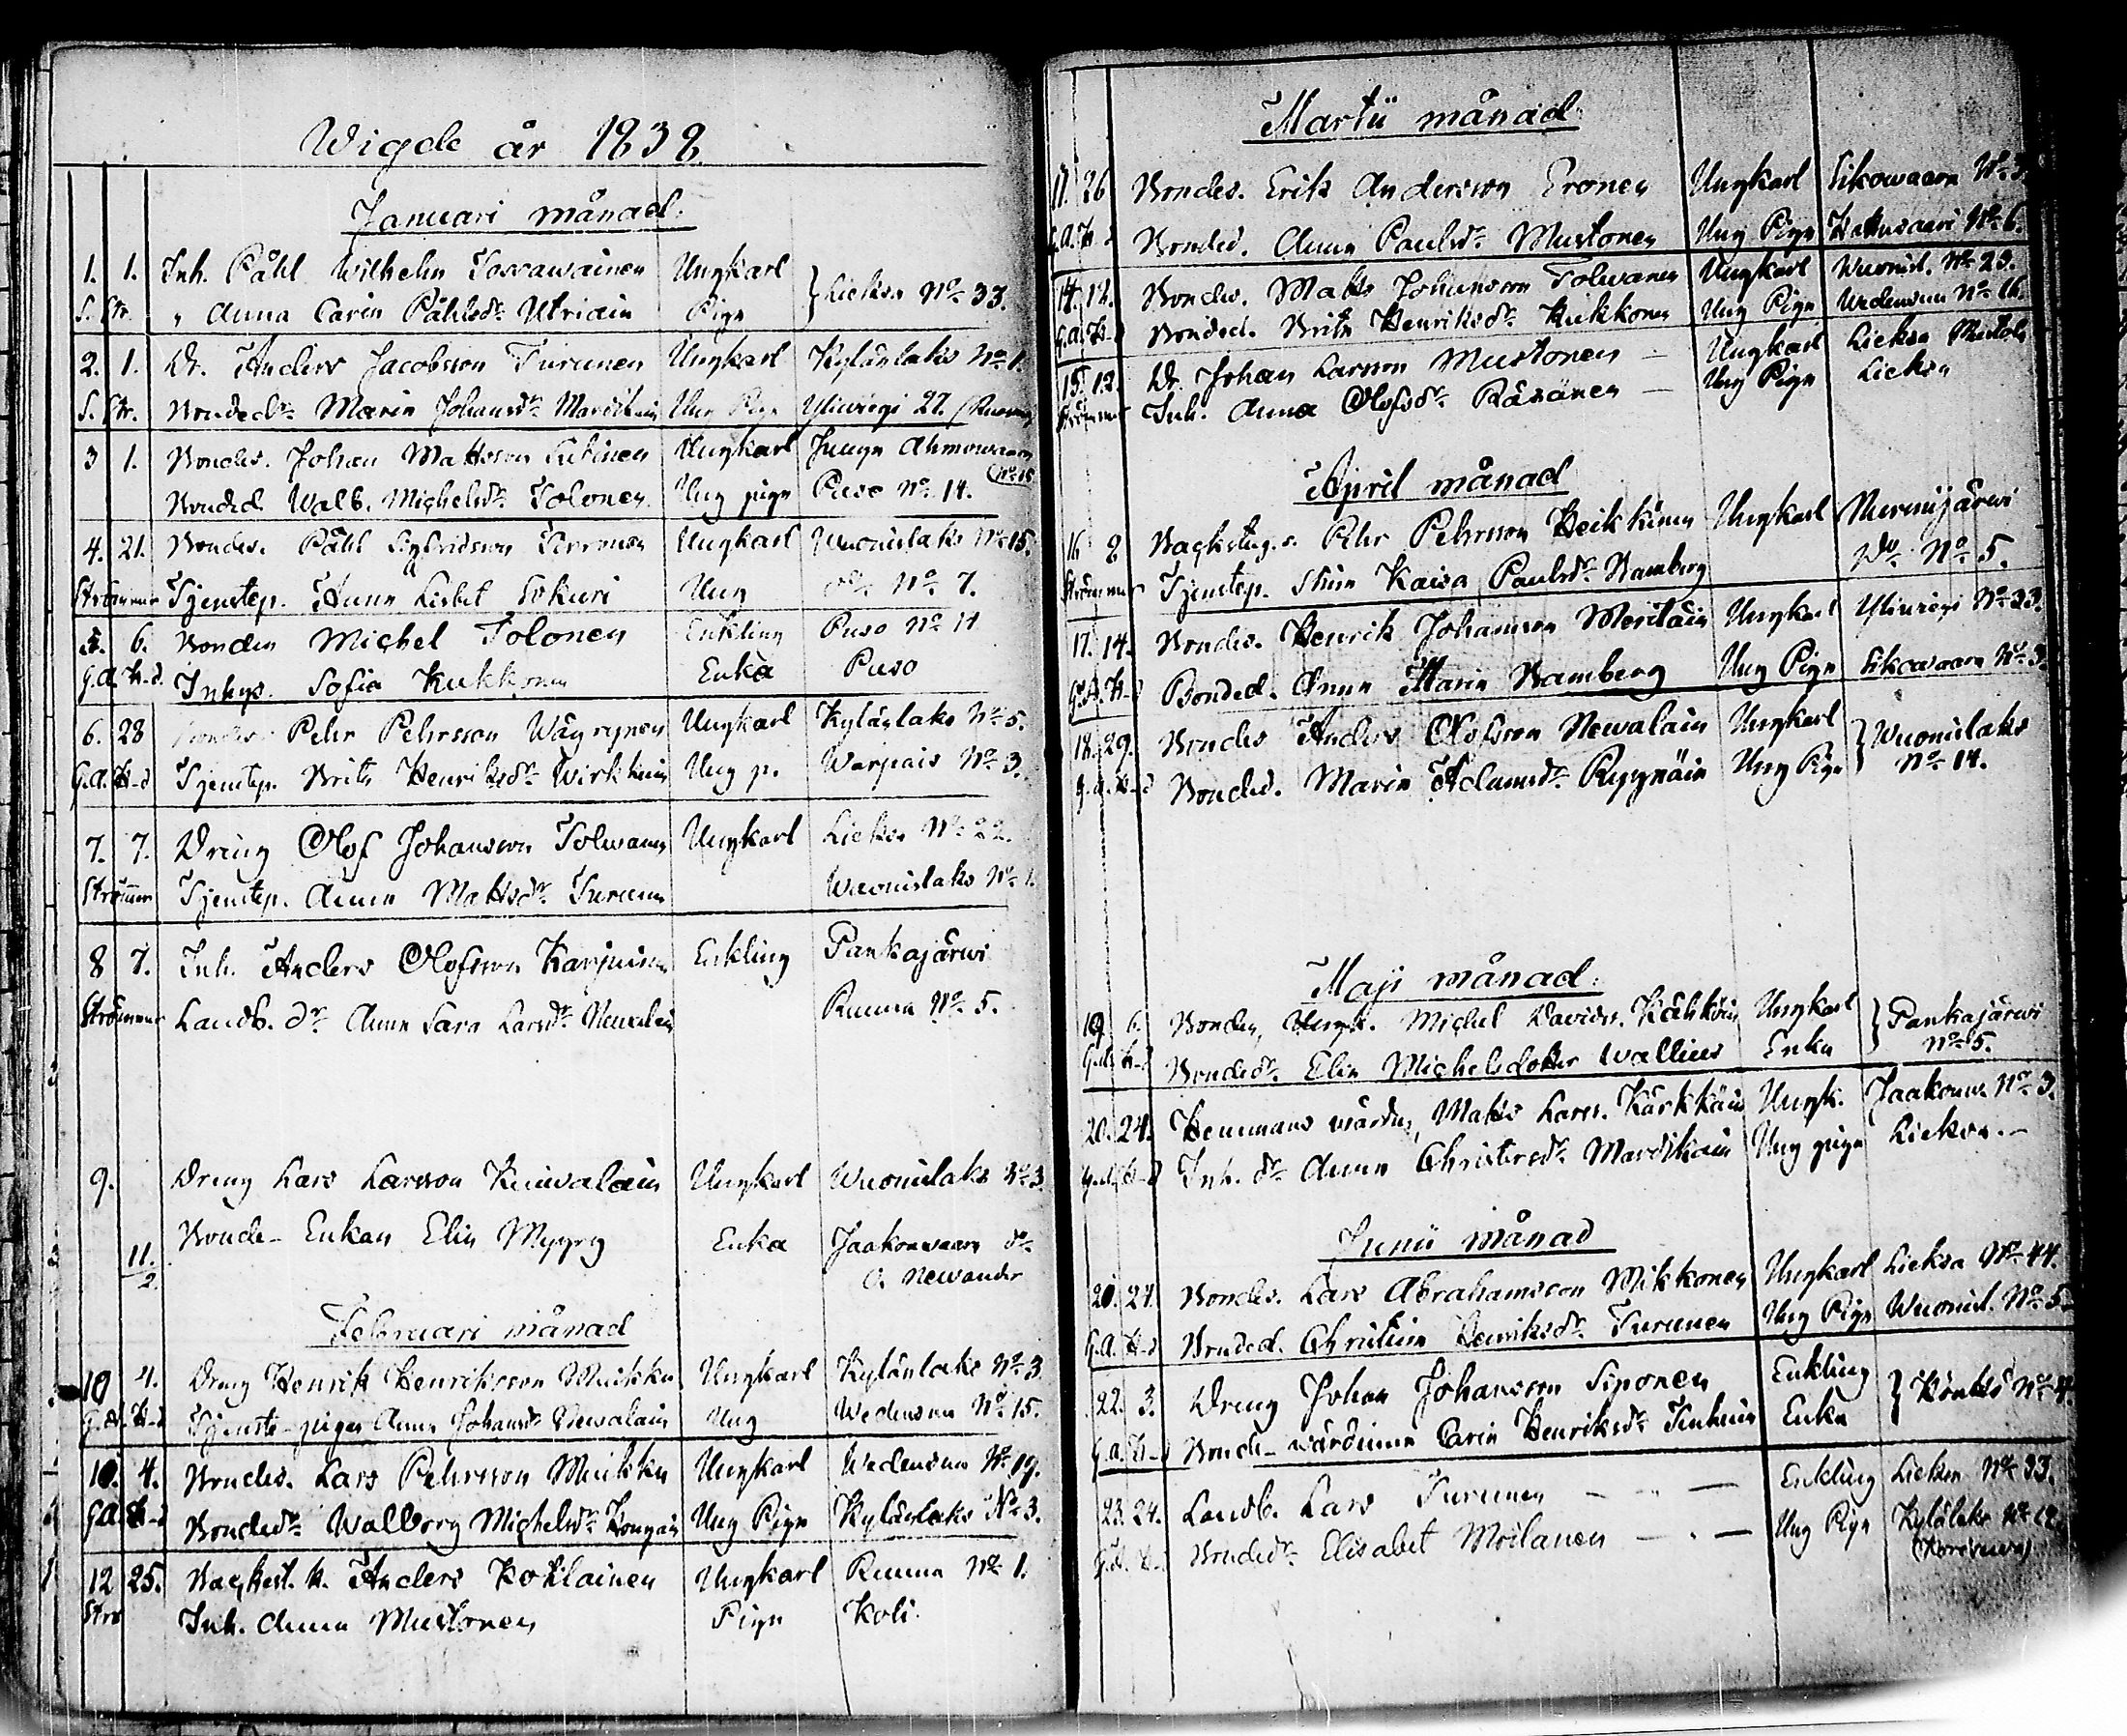 Wigde år 1838
Januari månad.
1. 1. Inh. Påhl Wilhelm Ungkarl
S. Str. " Anna Carin Påhlsdr. Utriain Piga } Lieksa No. 33.
2. 1. Dr. Anders Jacobsson Turunen Ungkarl Kylänlaks No. 1.
S. Str. Bondedr. Maria Johansdr. Mardikain Ung Piga Yliwiegi 27.
3 1. Bondes. Johan Mattsson Ungkarl Junga Ahmowaara
No. 15
Bonded. Walb. Michelsdr. Tolonen Ung piga Puso No. 14.
4. 21. Bondes. Påhl Sigfridsson Ungkarl Wuonislaks No. 15.
Strömmer Tjenstep. Anna Lisbet Sokuri Ung do. No. 7.
5. 6. Bonden Michel Tolonen Enkling Puso No. 11
G.A. H-d. Inhys. Sofia Kukkonen Enka Puso
6. 28 Bondes. Pehr Pehrsson Wäyrynen Ungkarl Kylänlaks No. 5.
G.A. H-d Tjenstep. Brita Henriksdr. Wirkkuin Ung p. Warpais No. 3.
7. 7. Dreng Olof Johansson Tolwanen Ungkarl Lieksa No. 22.
Strömmer Tjenstep. Anna Mattsdr. Turunen Wuonislaks No. 1.
8 7. Inh. Anders Olofsson Karjuinen Enkling Pankajärwi
Strömmer Landb. dr. Anna Sara Larsdr. Newalain Ruuna No. 5.
9. Dreng Lars Larsson Kuiwalain Ungkarl Wuonislaks No. 3
11./2. Bonde-Enkan Elin Myyry Enka Jaakonwaara
A. Newander
Februari månad
10 4. Dreng Henrik Henriksson Muikku Ungkarl Kylänlaks No. 3
G.A. H-d Tjenste-pigan Anna Johansdr. Newalain Ung Wedensuu No. 15.
10. 4. Bondes. Lars Pehrsson Muikku Ungkarl Wedensuu No. 19.
G.A. H-d Bondedr. Walborg Michelsdr. Ung Piga Kylänlaks No. 3.
12 25. Backst. k. Anders Koklainen Ungkarl Ruuna No. 1.
Str. Inh. Anna Mustonen Piga Koli.
Martii månad
26 Bondes. Erik Andersson Eronen Ungkarl Sikowaara No. 3.
G.A. H-d Bonded. Anna Paulsdr. Mustonen Ung Piga Hattusaari No. 6.
14. 12. Bondes. Matts Johansson Tolwanen Ungkarl Wuonisl. No. 23.
G.A. H-d Bonded. Brita Henriksdr. Kukkonen Ung Piga Wedensuu No. 16.
15. 12. Dr. Johan Larsson Mustonen — Ungkarl Lieksa
Strömmer Inh. Anna Olofsdr. Räsänen — Ung Piga Lieksa
April månad
16 8 Backstug. s. Pehr Pehrsson Heikkinen Ungkarl Nurmijärwi
Strömmer Tjenstep. Stina Kaisa Paulsdr. Bamberg Do. No. 5.
17. 14. Bondes. Henrik Johansson Meriläin Ungkarl Yliwiegi No. 33.
G.A. H-d Bonded. Anna Maria Bamberg Ung Piga Sikowaara No. 3.
18. 29. Bondes Anders Olofsson Newalain Ungkarl } Wuonislaks
G.A. H-d Bonded. Maria Adamsdr. Ryynäin Ung Piga No. 14.
Maji månad.
19 6. Bonden, Ungk. Michel Davids. Kähköin Ungkarl } Pankajärwi
G.A. H-d Bondedr. Elin Michelsdotter Wallius Enka No. 5.
20. 24. Hemmans wärden, Matts Larss. Kärkkäin Ungk. Jaakonw. No. 3.
G.A. H-d Inh. dr. Anna Christersdr. Mardikain Ung piga Lieksa. —
Junii månad
24. Bondes. Lars Abrahamsson Mikkonen Ungkarl Lieksa No. 44.
G.A. H-d Bonded. Christina Henriksdr. Turunen Ung Piga Wuonisl. No. 5
22. 3. Dreng Johan Johansson Siponen Enkling
G.A. H-d Bonde-wärdinna Carin Henriksdr. Enka } No.
23. 24. Landb. Lars Turunen — " — Enkling Lieksa No. 33.
G.A. H-d Bondedr. Elisabet Moilanen — . — Ung Piga Kylälaks No. 12